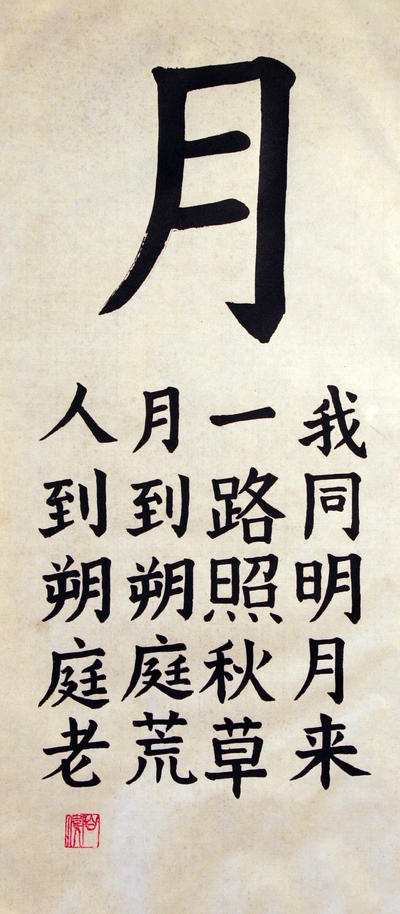 月
我同明月来
一路照秋草
月到朔庭荒
人到朔庭老